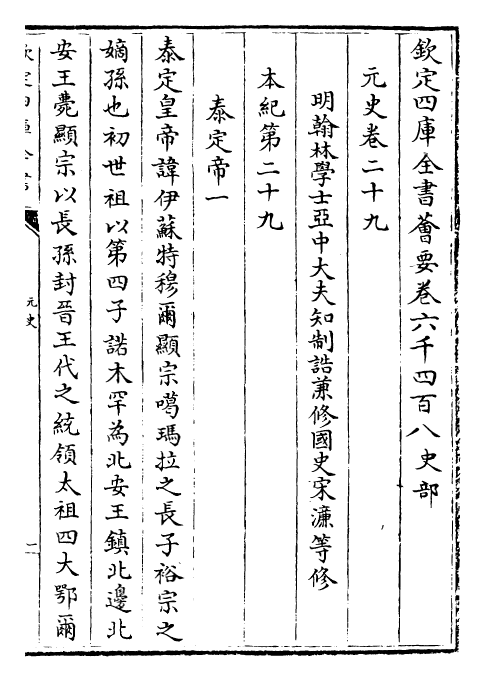 欽定四庫全書薈要卷六千四百八史部
元史卷二十九
明翰林學士亞中大夫知制誥兼修國史宋濂等修
本紀第二十九
泰定帝一
泰定皇帝諱伊蘇特穆爾顯宗噶瑪拉之長子裕宗之
嫡孫也初世祖以第四子諾木罕為北安王鎮北邊北
安王薨顯宗以長孫封晉王代之統領太祖四大鄂爾
欽定四庫全書
元史
一